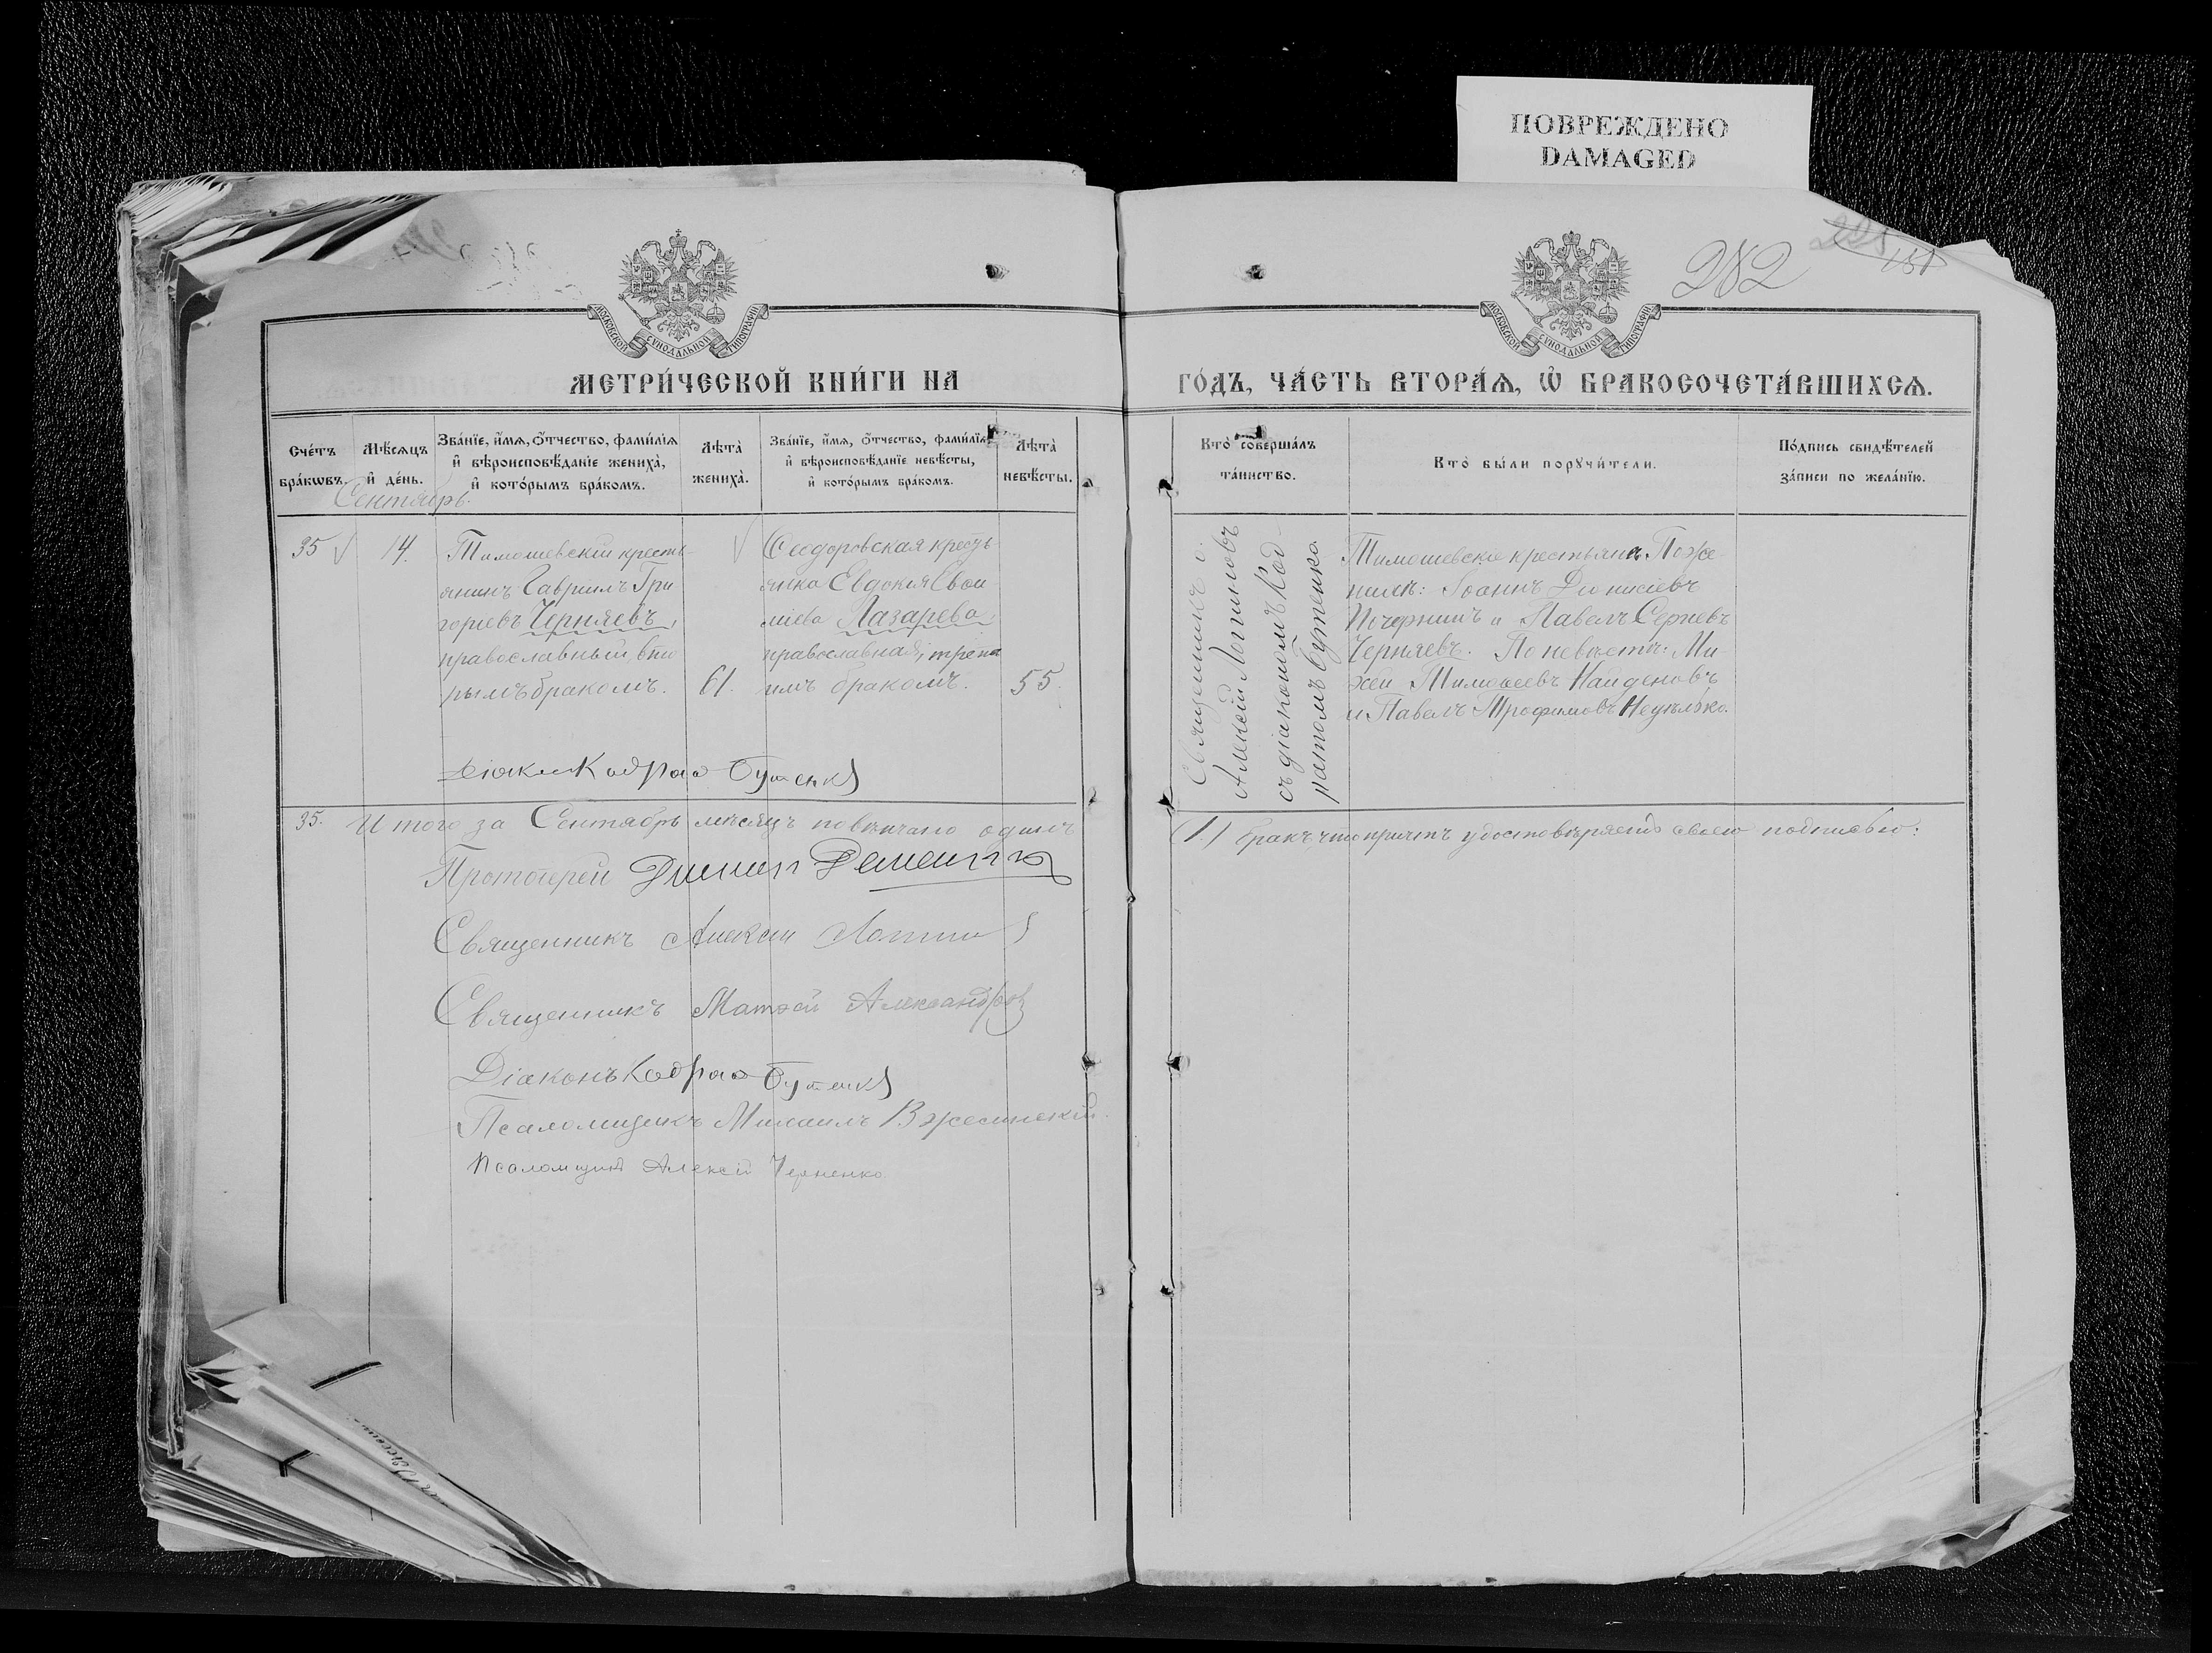 ПОВРЕЖДЕНО
DAMAGED
282
151
МОСКОВСКОЙ СУНОДАЛЬНОЙ ТИПОГРАФІИ
МОСКОВСКОЙ СУНОДАЛЬНОЙ ТИПОГРАФІИ
МЕТРИ́ЧЕСКОЙ КНИ́ГИ НА
ГО́ДЪ, ЧА́СТЬ ВТОРА́Ѧ, Ѿ БРАКОСОЧЕТА́ВШИХСѦ.
Сче́тъ
бра́кѡвъ.
Мѣ́сѧцъ
и҆ де́нь.
Зва́нїе, и҆́мѧ, ѻ҆́тчество, фами́лїѧ
и҆ вѣроисповѣ́данїе жениха̀,
и҆ кото́рымъ бра́комъ.
Лѣта̀
жениха̀.
Зва́нїе, и҆́мѧ, ѻ҆́тчество, фами́лїѧ
и҆ вѣроисповѣ́данїе невѣ́сты,
и҆ кото́рымъ бра́комъ.
Лѣта̀
невѣ́сты.
Кто̀ соверша́лъ
та́инство.
Кто̀ бы́ли порꙋчи́тели.
По́дпись свидѣ́телей
за́писи по жела́нїю.
Сентябрь.
35
14.
Тимошевскій кресть-
янинъ Гавріилъ Гри
горіевъ Черняевъ,
православный, вто
рымъ бракомъ.
61.
Ѳеодоровская кресть-
янка Евдокія
Лазарева,
православная, треть
имъ бракомъ.
55.
Священникъ о.
Алексій Логиновъ
съ діакономъ Код-
ратомъ Бутенко
Тимошевскіе крестьяне. По же-
нихѣ: Іоаннъ Діонисіевъ
и Павелъ Сергіевъ
Черняевъ. По невѣстѣ: Ми-
хей Тимоѳеевъ Найденовъ
и Павелъ Трофимовъ
Діаконъ Кодратъ Бутенко
35.
Итого за Сентябрь мѣсяцъ повѣнчано одинъ
(1.) бракъ, что причтъ удостовѣряетъ своею подписью:
Протоіерей
Священникъ Алексій Логинов
Священникъ Матѳей Александров
Діаконъ Кодратъ Бутенко
Псаломщикъ Михаилъ Вжесинскій.
Псаломщик Алексій Черненко